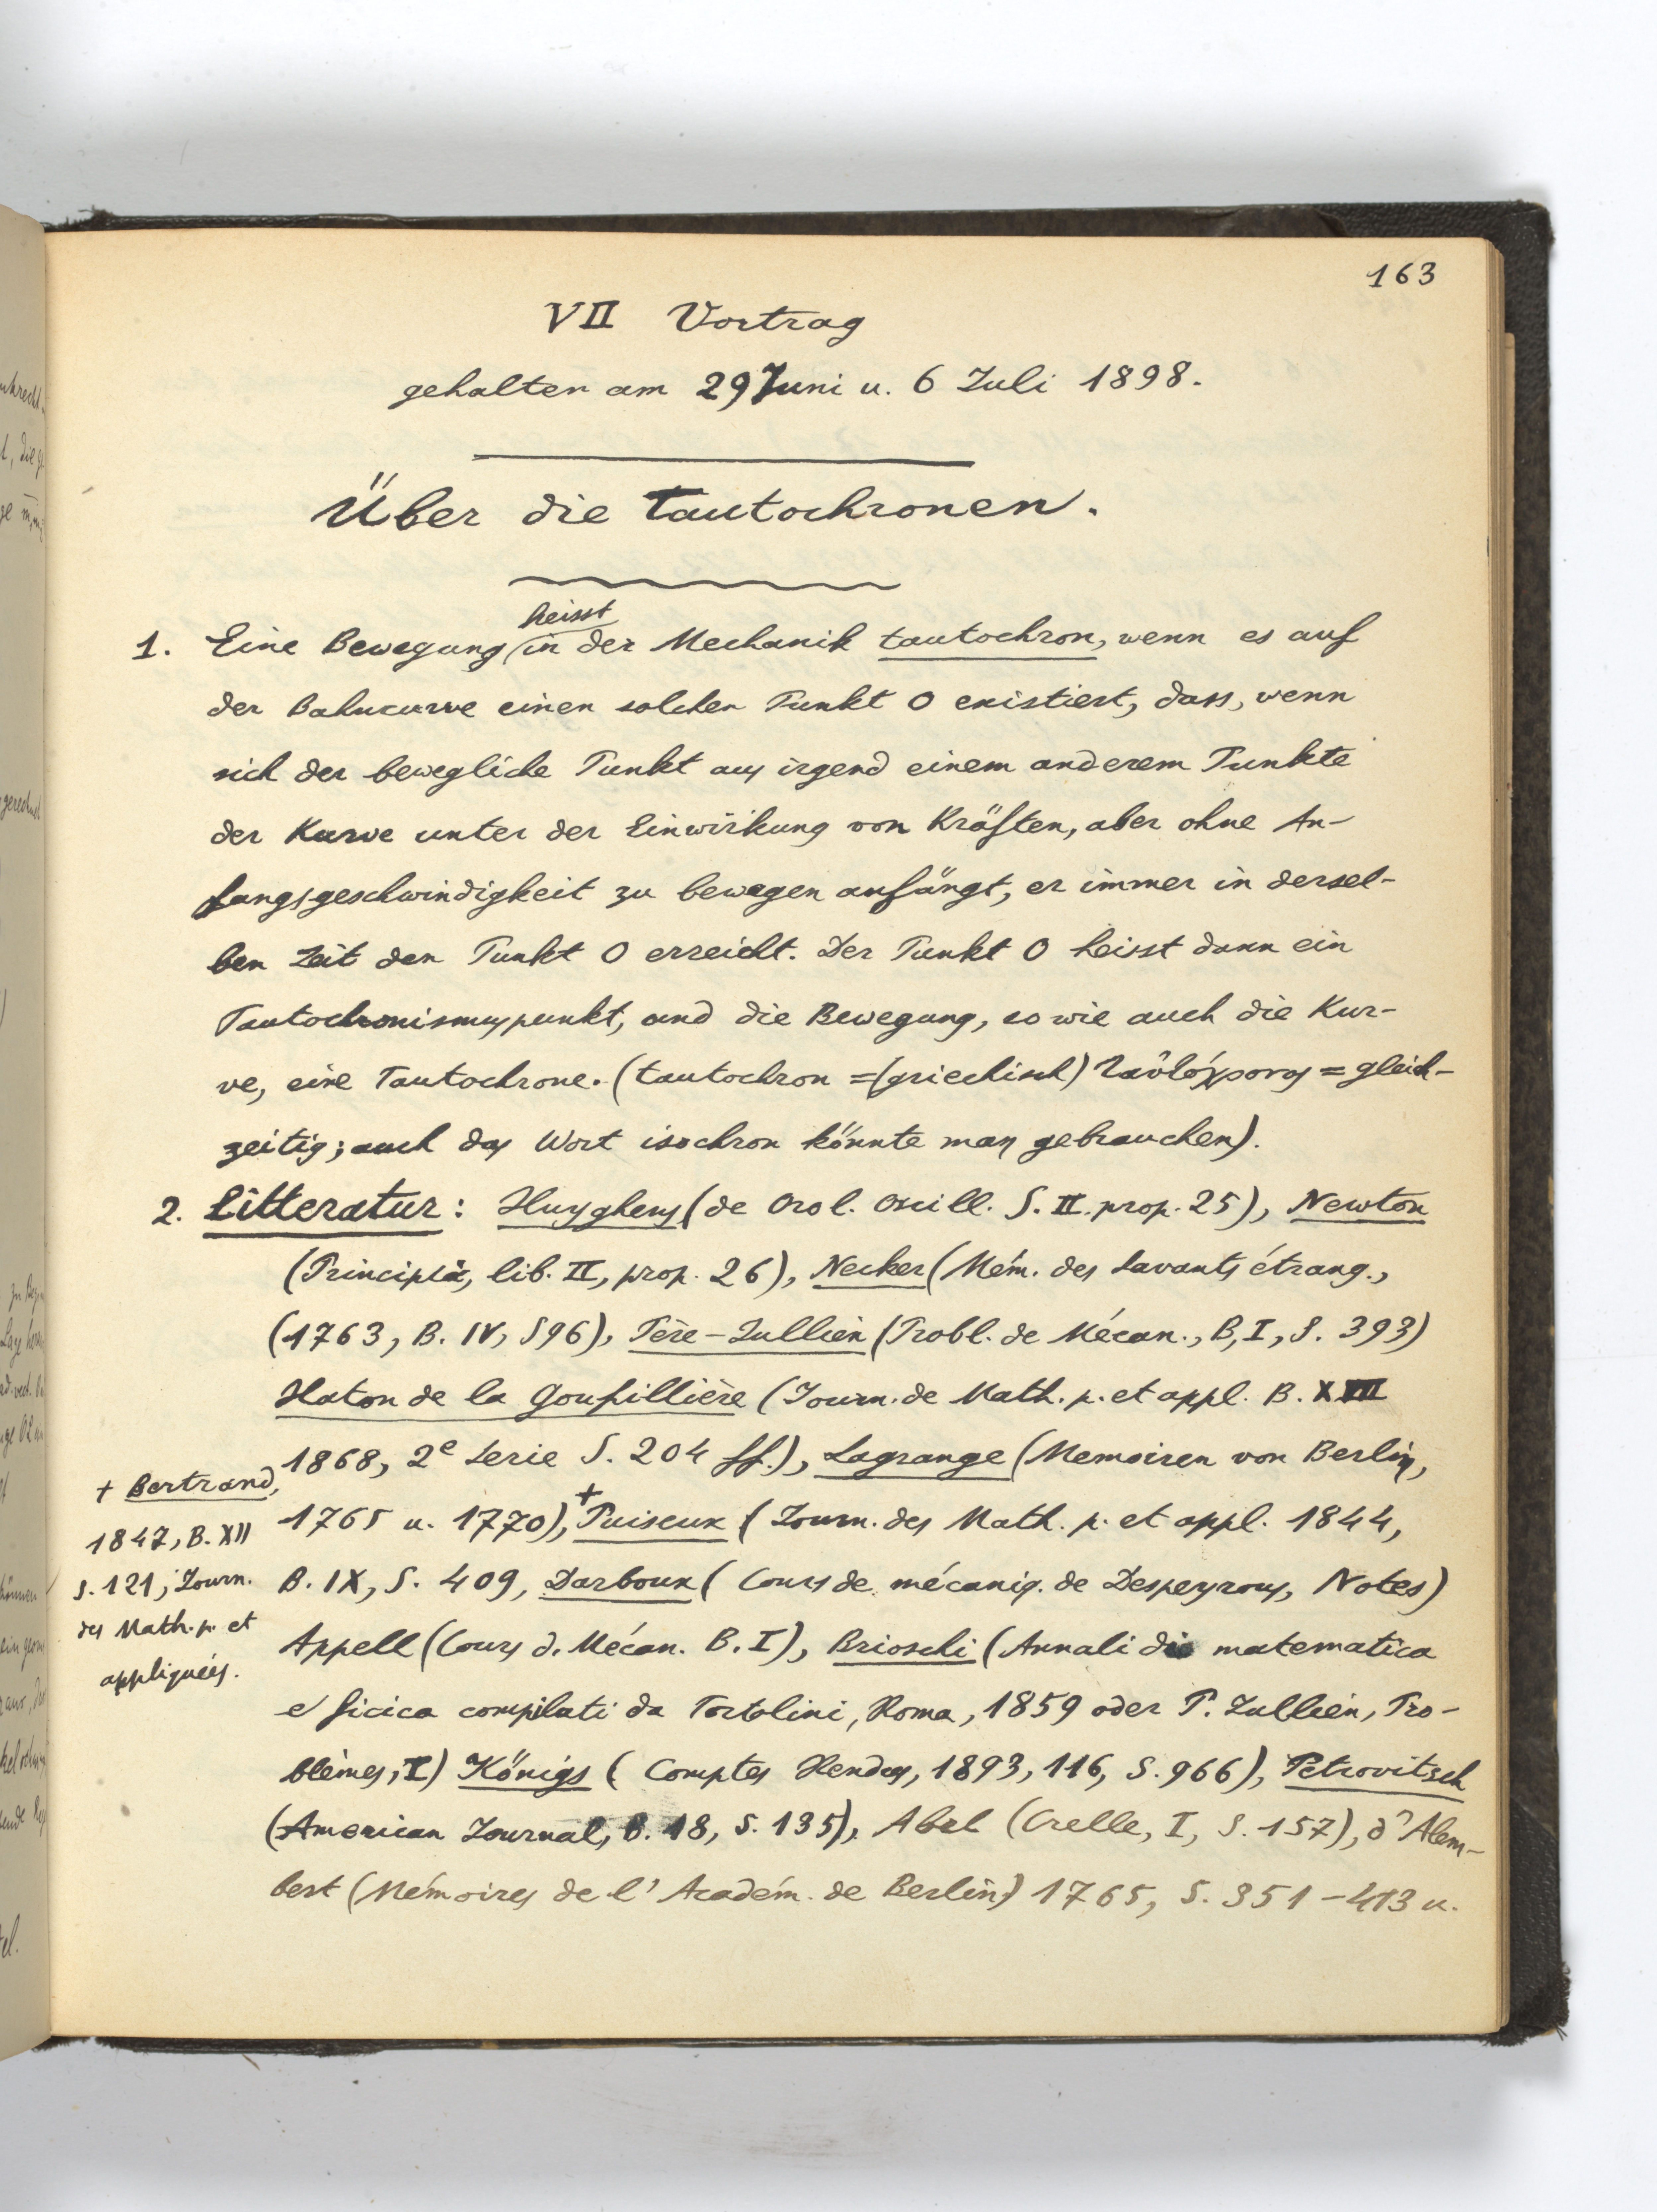 163
VII Vortrag
gehalten am 29 Juni u. 6 Juli 1898.
Über die Tautochronen.
heisst
1. Eine Bewegung in der Mechanik tautochron, wenn es auf
der Bahncurve einen solchen Punkt O existiert, dass, wenn
sich der bewegliche Punkt aus irgend einem anderem Punkte
der Kurve unter der Einwirkung von Kräften, aber ohne An-
fangsgeschwindigkeit zu bewegen anfängt, er immer in dersel-
ben Zeit den Punkt O erreicht. Der Punkt O heisst dann ein
Tautochronismuspunkt, und die Bewegung, so wie auch die Kur-
ve, eine Tautochrone. (tautochron = (griechisch) ταὐτόχρονος = gleich-
zeitig; auch das Wort isochron könnte man gebrauchen).
2. Litteratur: Huyghens (de Orol. Oscill. S. II. prop. 25), Newton
(Principia, lib. II, prop. 26), Necker (Mém. des Savants étrang.,
(1763, B. IV, S 96), Père-Jullien (Probl. de Mécan., B, I, S. 393)
Haton de la Goupillière (Journ. de Math. p. et appl. B. XIII
1868, 2e Serie S. 204 ff.), Lagrange (Memoiren von Berlin,
1765 u. 1770), + Puiseux (Journ. des Math. p. et appl. 1844,
B. IX, S. 409, Darboux (Cours de mécaniq. de Despeyrous, Notes)
Appell (Cours d. Mécan. B. I), Brioschi (Annali di matematica
e ficica compilati da Tortolini, Roma, 1859 oder P. Jullien, Pro-
blèmes, I) Königs (Comptes Rendus, 1893, 116, S. 966), Petrovitsch
(American Journal, B. 18, S. 135), Abel (Crelle, I, S. 157), d'Alem-
bert (Mémoires de l'Académ. de Berlin) 1765, S. 351-413 u.
+ Bertrand,
1847, B. XII
S. 121, Journ.
des Math. p. et
appliquées.